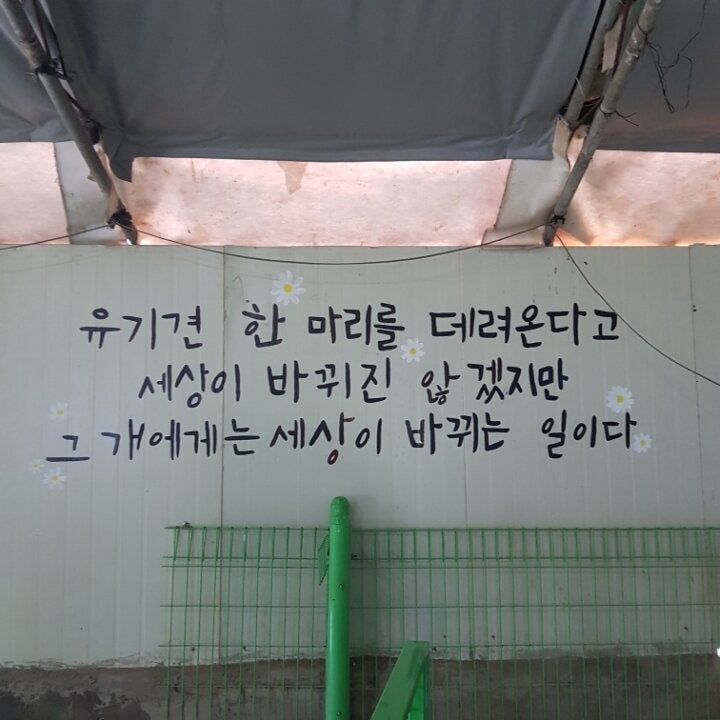 유기견 한 마리를 데려온다고
세상이 바뀌진 않겠지만
그 개에게는 세상이 바뀌는 일이다